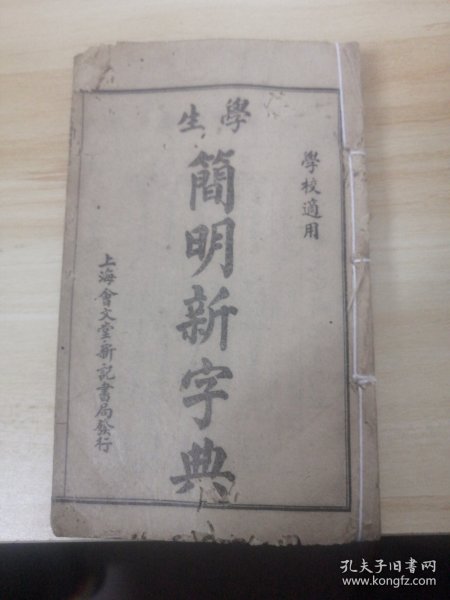 學校適用
學生
簡明新字典
上海會文堂新記書局發行
孔夫子旧书网
www.kongfz.com